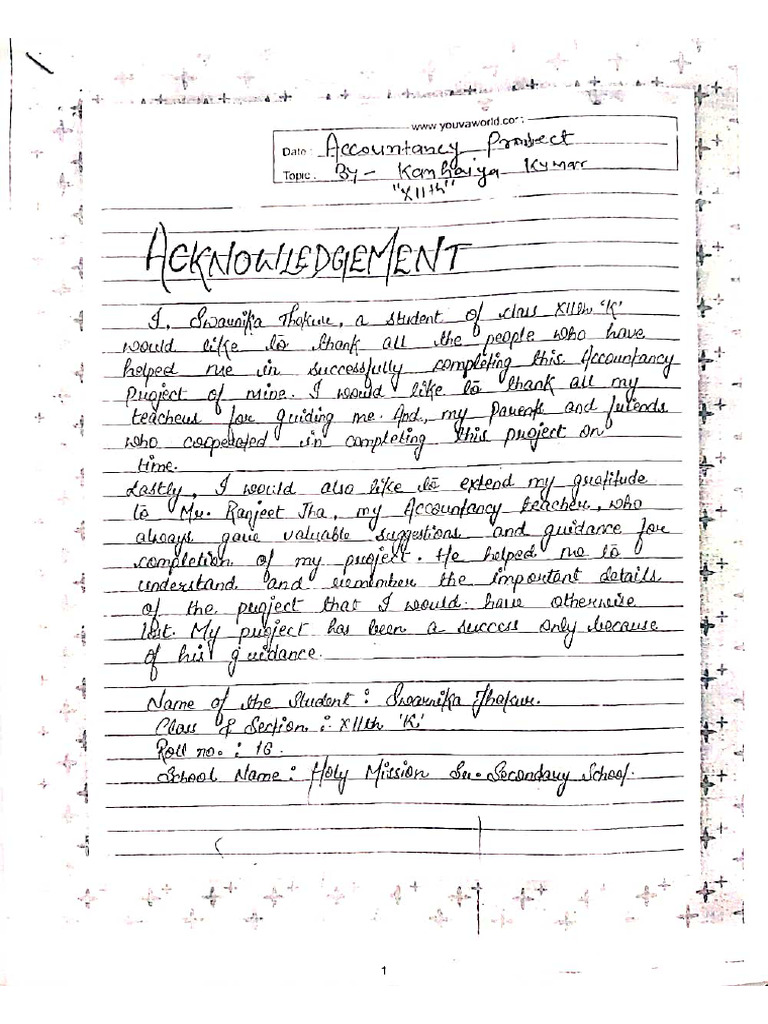 www.youvaworld.com
Date: Accountancy Project
Topic. By- Kanhaiya Kumar
"XIIth"
ACKNOWLEDGEMENT
I, Swarnika Thakur, a student of class XIIth 'K'
would like to thank all the people who have
helped me in successfully completing this Accountancy
Project of mine. I would like to thank all my
teachers for guiding me. And, my parents and friends
who cooperated in completing this project on
time.
Lastly, I would also like to extend my gratitude
to Mr. Ranjeet Jha, my Accountancy teacher, who
always gave valuable suggestions and guidance for
completion of my project. He helped me to
understand and remember the important details
of the project that I would have otherwise
lost. My project has been a success only because
of his guidance.
Name of the Student: Swarnika Thakur.
Class & Section: XIIth 'K'
Roll no.: 16.
School Name: Holy Mission Sr. Secondary School.
1